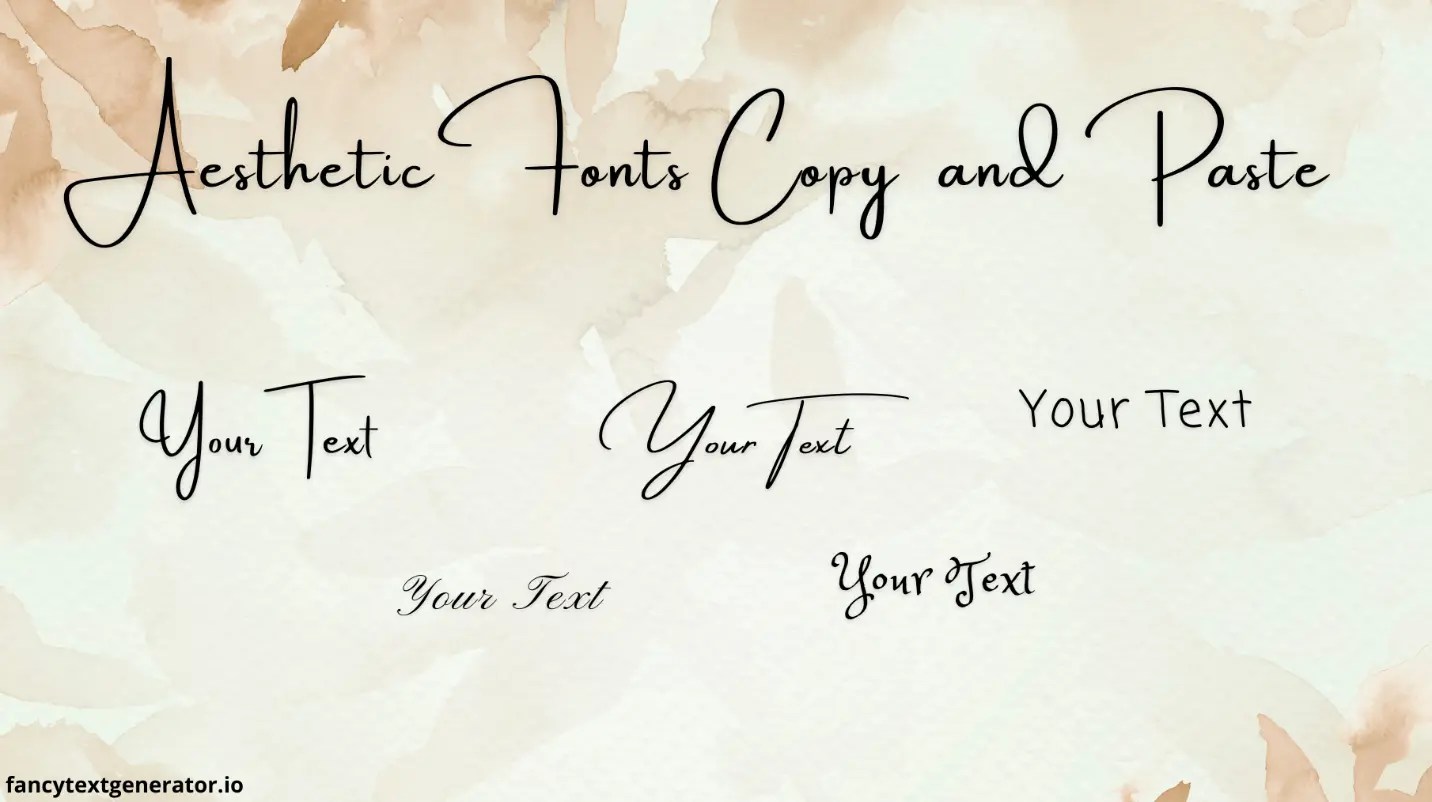 Aesthetic Fonts Copy and Paste
Your Text
Your Text
Your Text
Your Text
Your Text
fancytextgenerator.io